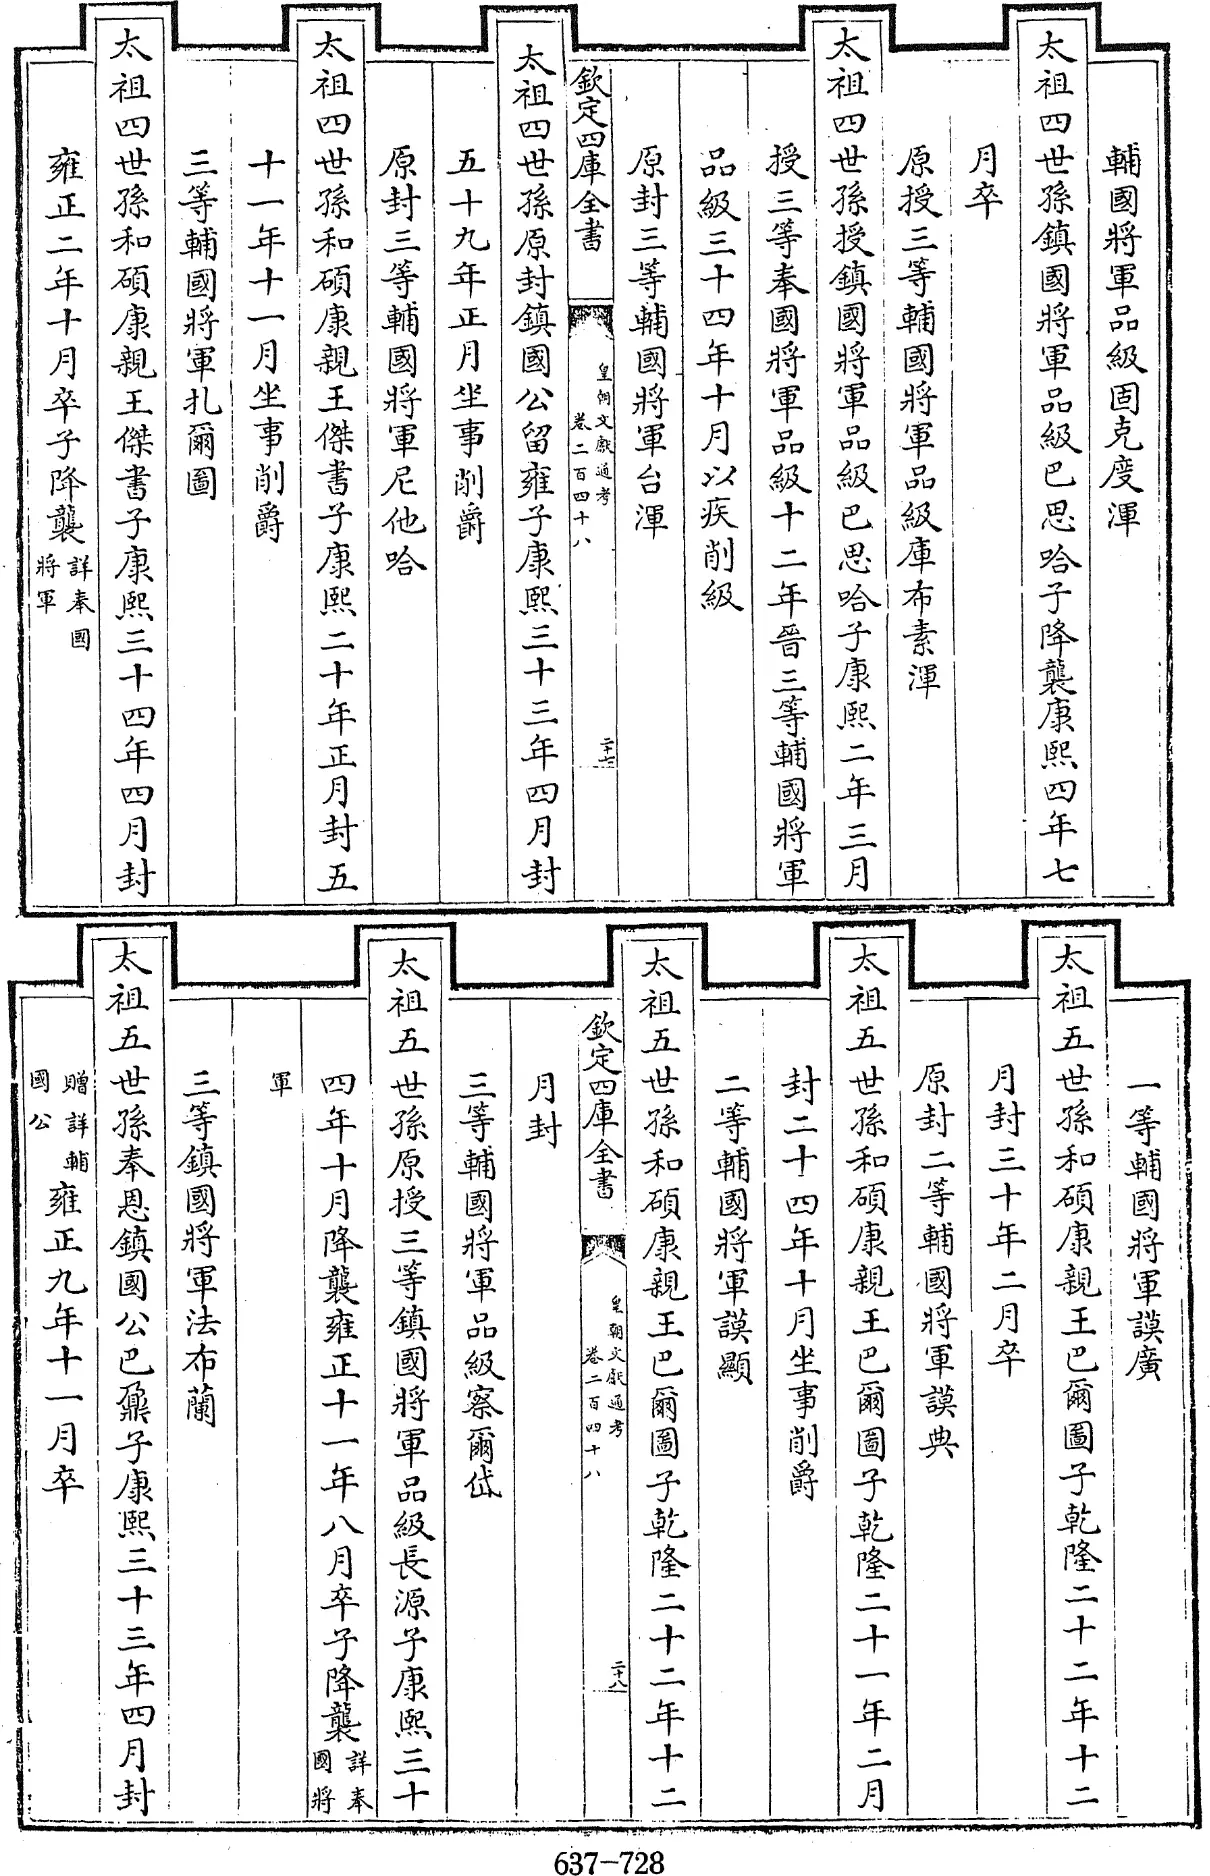 輔國將軍品級固克度渾
太祖四世孫鎮國將軍品級巴思哈子降襲康熙四年七
月卒
原授三等輔國將軍品級庫布素渾
太祖四世孫授鎮國將軍品級巴思哈子康熙二年三月
授三等奉國將軍品級十二年晉三等輔國將軍
品級三十四年十月以疾削級
原封三等輔國將軍台渾
欽定四庫全書
皇朝文獻通考
卷二百四十八
二十七
太祖四世孫原封鎮國公留雍子康熙三十三年四月封
五十九年正月坐事削爵
原封三等輔國將軍尼他哈
太祖四世孫和碩康親王傑書子康熙二十年正月封五
十一年十一月坐事削爵
三等輔國將軍扎爾圖
太祖四世孫和碩康親王傑書子康熙三十四年四月封
雍正二年十月卒子降襲詳奉國將軍
一等輔國將軍謨廣
太祖五世孫和碩康親王巴爾圖子乾隆二十二年十二
月封三十年二月卒
原封二等輔國將軍謨典
太祖五世孫和碩康親王巴爾圖子乾隆二十一年二月
封二十四年十月坐事削爵
二等輔國將軍謨顯
太祖五世孫和碩康親王巴爾圖子乾隆二十二年十二
欽定四庫全書
皇朝文獻通考
卷二百四十八
二十八
月封
三等輔國將軍品級察爾岱
太祖五世孫原授三等鎮國將軍品級長源子康熙三十
四年十月降襲雍正十一年八月卒子降襲詳奉國將
軍
三等鎮國將軍法布蘭
太祖五世孫奉恩鎮國公巴鼐子康熙三十三年四月封
贈詳輔國公雍正九年十一月卒
637-728